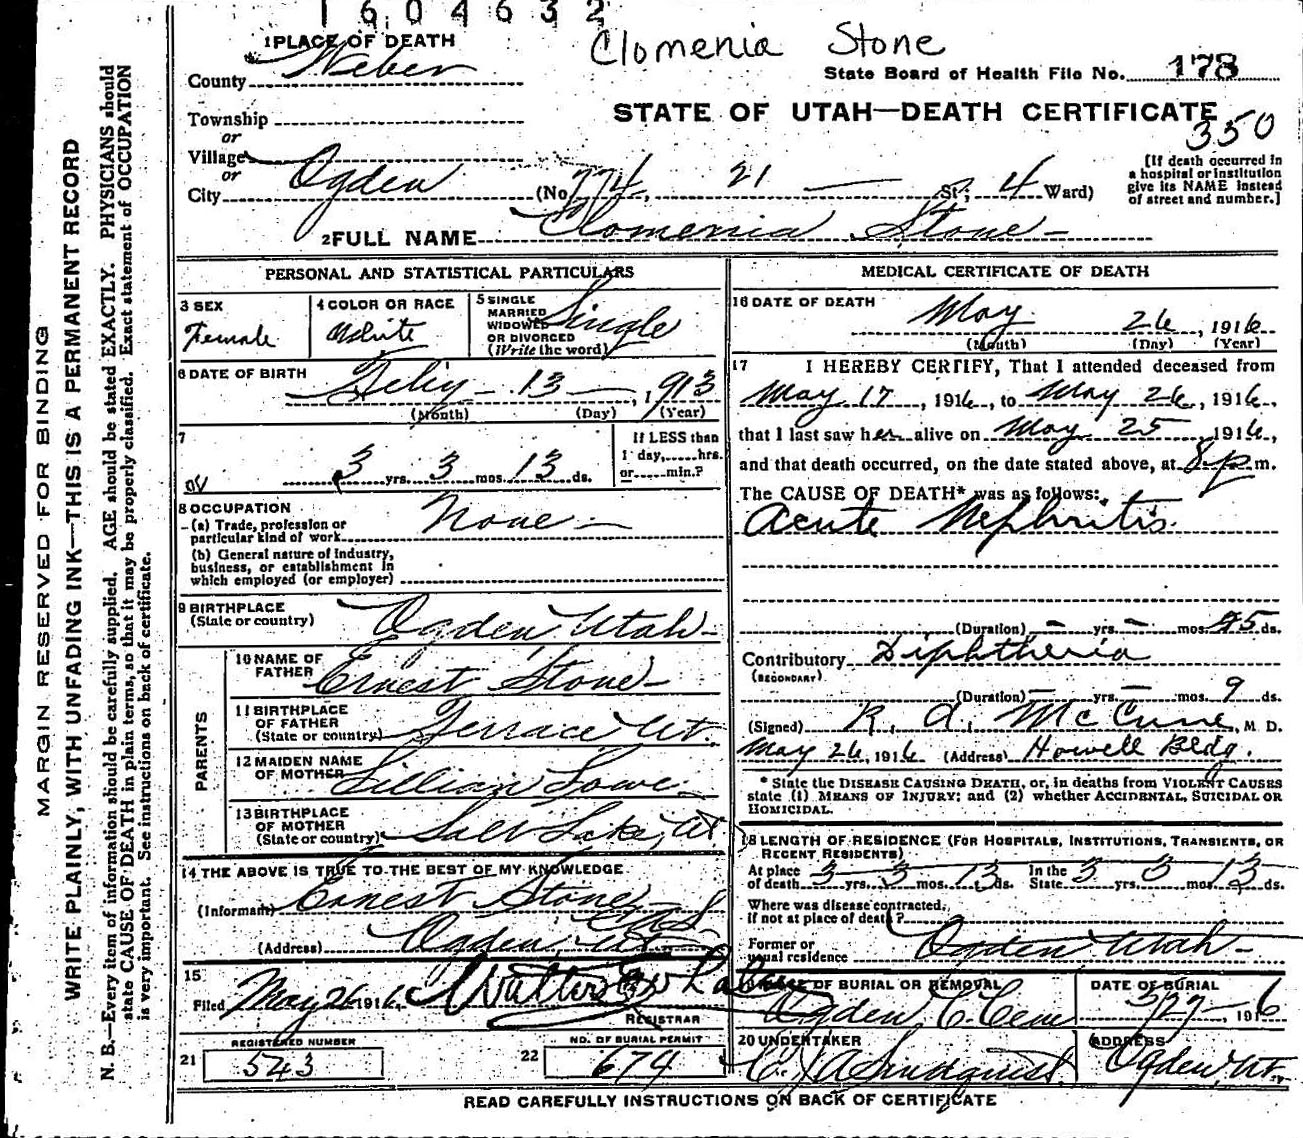 1604632
Clomenia Stone
1 PLACE OF DEATH
County Weber
State Board of Health File No. 178
Township
STATE OF UTAH—DEATH CERTIFICATE
350
or
Village
or
City Ogden (No. 774, 21 — St; 4 Ward)
[If death occurred in
a hospital or institution
give its NAME instead
of street and number.]
2 FULL NAME Clomenia Stone
MARGIN RESERVED FOR BINDING
WRITE PLAINLY, WITH UNFADING INK—THIS IS A PERMANENT RECORD
N. B.—Every item of information should be carefully supplied. AGE should be stated EXACTLY. PHYSICIANS should
state CAUSE OF DEATH in plain terms, so that it may be properly classified. Exact statement of OCCUPATION
is very important. See instructions on back of certificate.
PERSONAL AND STATISTICAL PARTICULARS
3 SEX
Female
4 COLOR OR RACE
White
5 SINGLE
MARRIED
WIDOWED
OR DIVORCED
(Write the word)
Single
6 DATE OF BIRTH
Feby - 13 — , 1913
(Month) (Day) (Year)
7
3 yrs. 3 mos. 13 ds.
If LESS than
1 day,.....hrs.
or......min.?
8 OCCUPATION
(a) Trade, profession or
particular kind of work
None —
(b) General nature of Industry,
business, or establishment in
which employed (or employer)
9 BIRTHPLACE
(State or country)
Ogden, Utah -
PARENTS
10 NAME OF
FATHER
Ernest Stone -
11 BIRTHPLACE
OF FATHER
(State or country)
Terrace Ut.
12 MAIDEN NAME
OF MOTHER
Lillian Lowe
13 BIRTHPLACE
OF MOTHER
(State or country)
Salt Lake, Ut.
14 THE ABOVE IS TRUE TO THE BEST OF MY KNOWLEDGE
(Informant) Ernest Stone
(Address) Ogden Ut.
15
Filed May 26 1916
REGISTRAR
REGISTERED NUMBER
21 543
NO. OF BURIAL PERMIT
22 674
MEDICAL CERTIFICATE OF DEATH
16 DATE OF DEATH
May 26, 1916
(Month) (Day) (Year)
17 I HEREBY CERTIFY, That I attended deceased from
May 17, 1916, to May 26, 1916,
that I last saw her alive on May 25, 1916,
and that death occurred, on the date stated above, at 8 p m.
The CAUSE OF DEATH* was as follows:
Acute Nephritis.
(Duration) — yrs. — mos. 5 ds.
Contributory Diphtheria
(SECONDARY)
(Duration) — yrs. — mos. 9 ds.
(Signed) R. A. McCune, M. D.
May 26, 1916 (Address) Howell Bldg.
* State the DISEASE CAUSING DEATH, or, in deaths from VIOLENT CAUSES
state (1) MEANS OF INJURY; and (2) whether ACCIDENTAL, SUICIDAL OR
HOMICIDAL.
18 LENGTH OF RESIDENCE (FOR HOSPITALS, INSTITUTIONS, TRANSIENTS, OR
RECENT RESIDENTS)
At place
of death 3 yrs. 3 mos. 13 ds.
In the
State 3 yrs. 3 mos. 13 ds.
Where was disease contracted,
if not at place of death?
Former or
usual residence Ogden Utah -
19 PLACE OF BURIAL OR REMOVAL
Ogden C. Cem
DATE OF BURIAL
5/27 - , 1916
20 UNDERTAKER
C. J. A. Lindquist
ADDRESS
Ogden, Ut.
READ CAREFULLY INSTRUCTIONS ON BACK OF CERTIFICATE